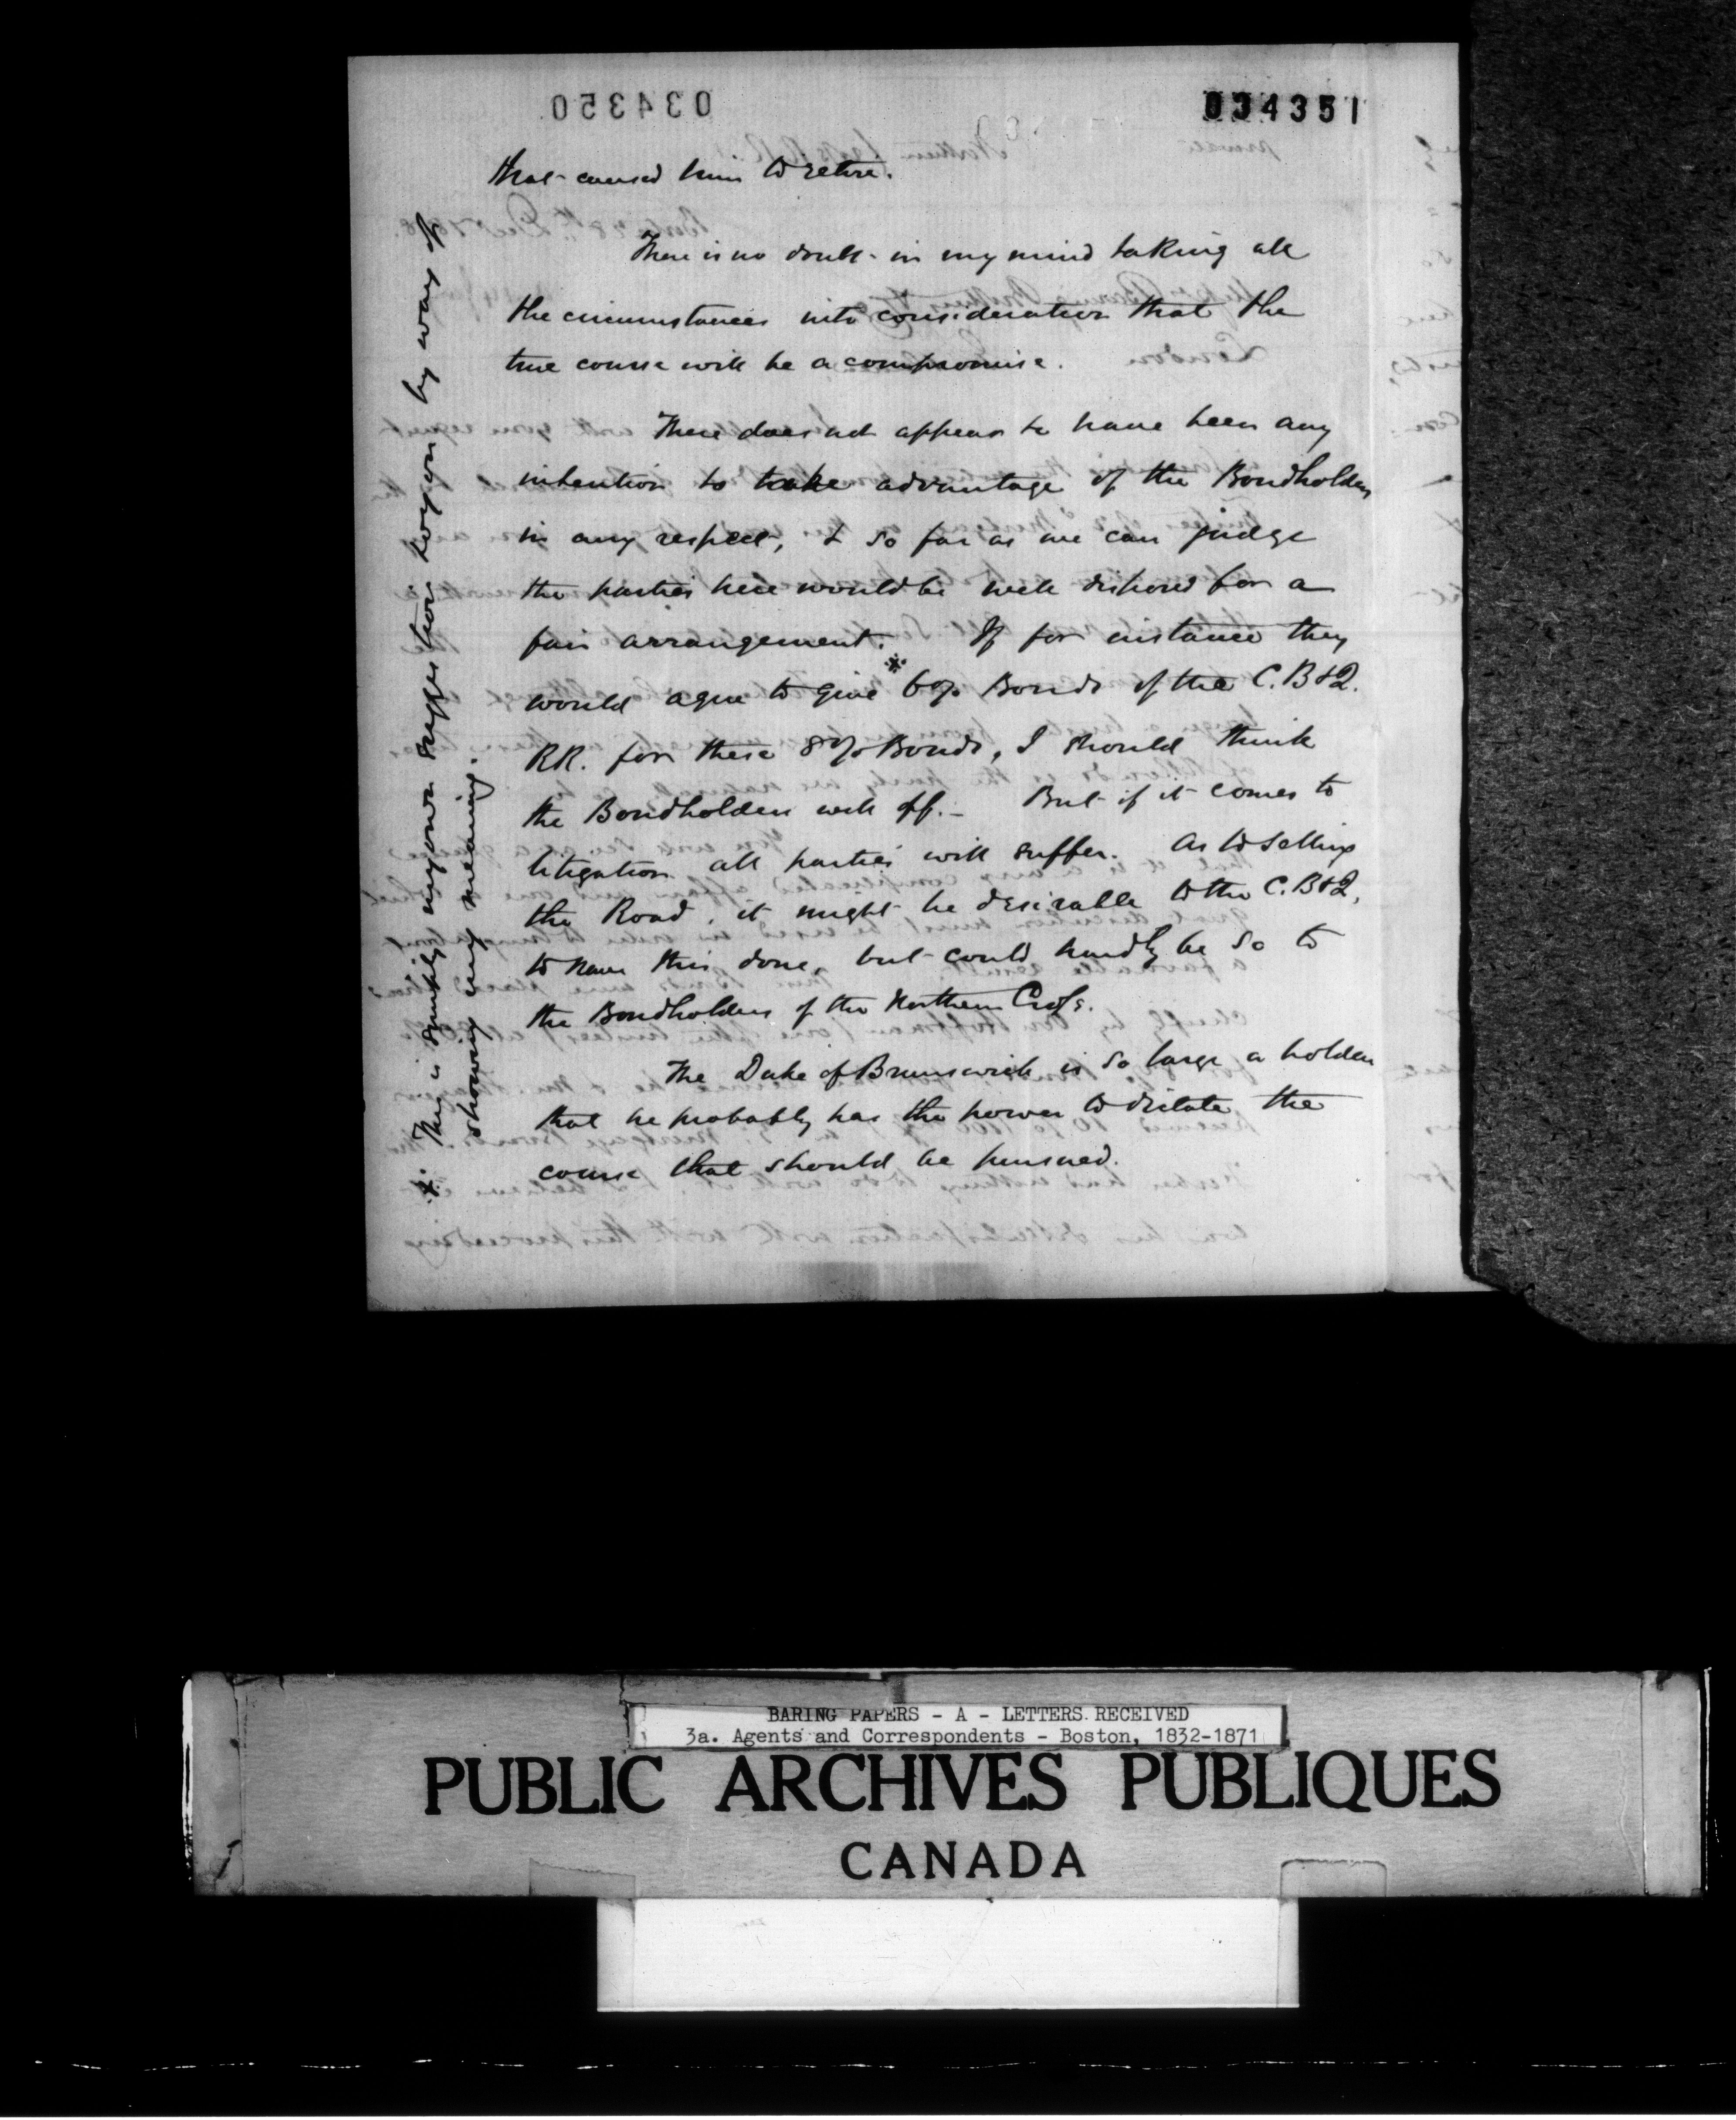 034351
that caused him to retire.
There is no doubt in my mind taking all
the circumstances into consideration that the
true course will be a compromise.
There does not appear to have been any
intention to take advantage of the Bondholders
in any respect, & so far as we can judge
the parties here would be well disposed for a
fair arrangement. If for instance they
would agree to give * 6% Bonds of the C. B & Q.
RR. for these 8% Bonds, I should think
the Bondholders well off. – But if it comes to
litigation all parties will suffer. As to selling
the Road, it might be desirable to the C. B & Q,
to have this done, but could hardly be so to
the Bondholders of the Northern Cross.
The Duke of Brunswick is so large a holder
that he probably has the power to dictate the
course that should be pursued.
* This is simply my own suggestion to you by way of
showing my meaning.
BARING PAPERS - A - LETTERS RECEIVED
3a. Agents and Correspondents - Boston, 1832-1871
PUBLIC ARCHIVES PUBLIQUES
CANADA